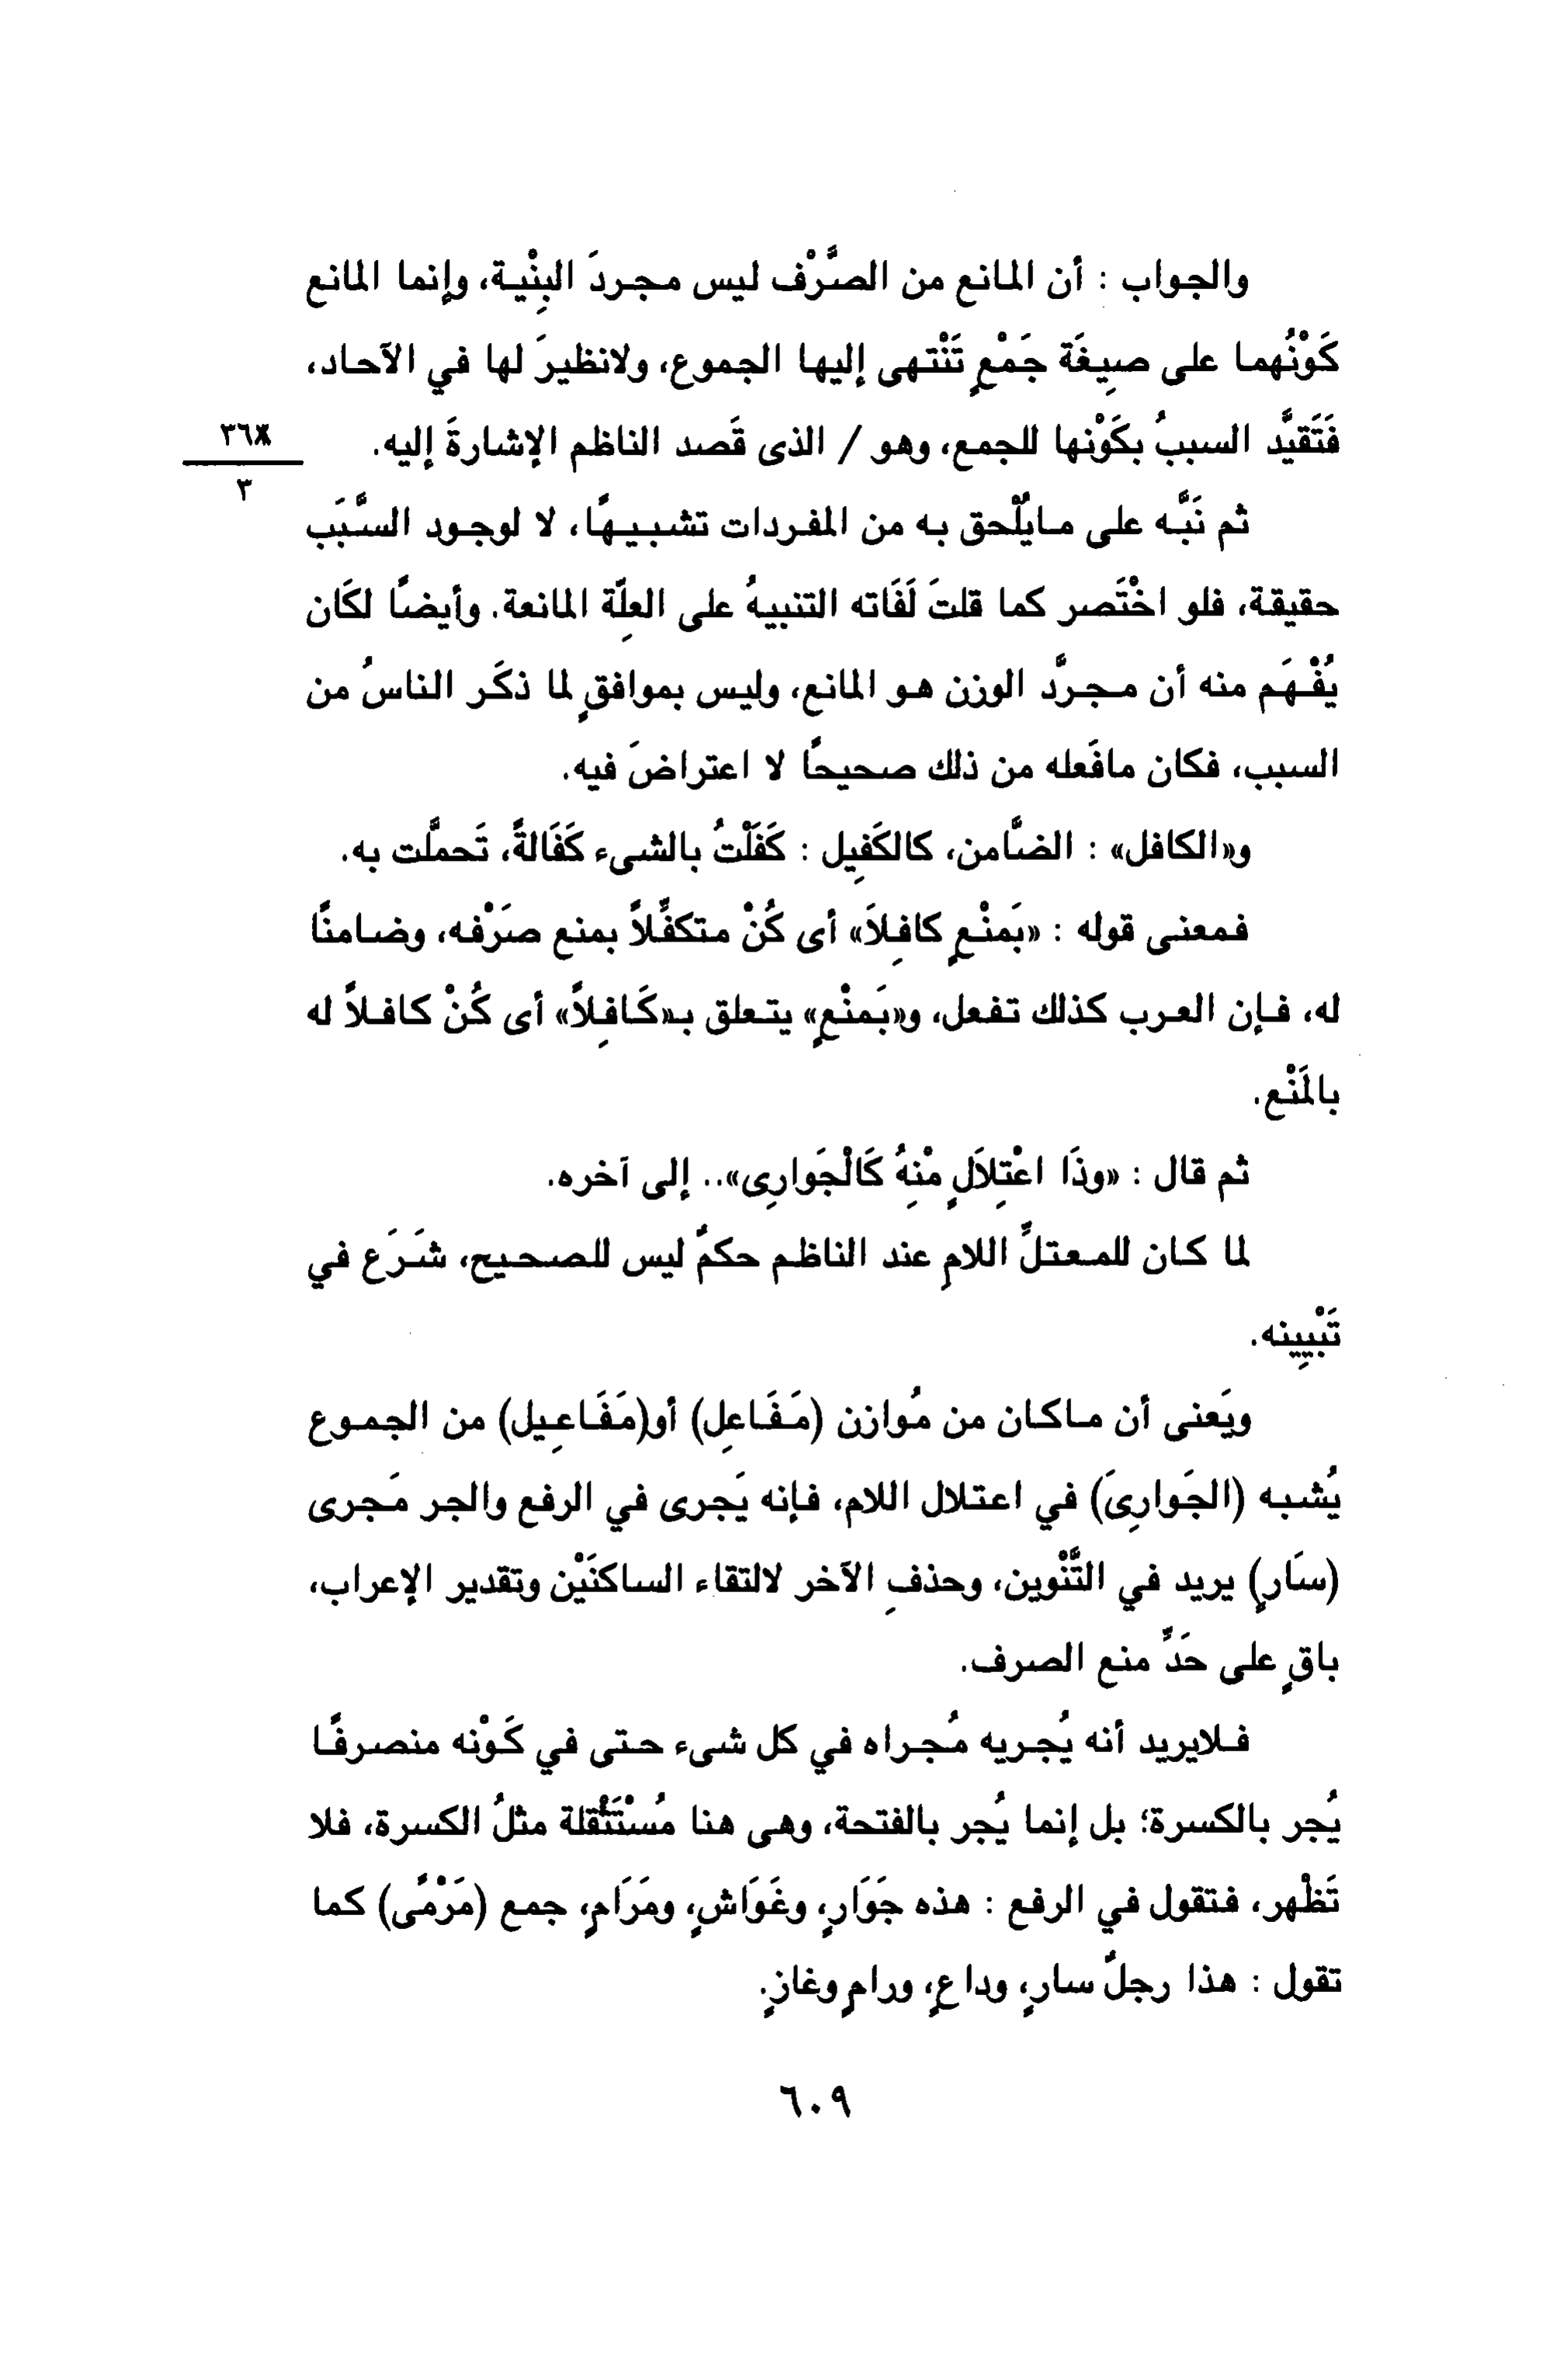 والجواب : أن المانع من الصَّرْف ليس مجردَ البِنْية، وإنما المانع
كَوْنُهما على صيِغَة جَمْعٍ تَنْتهى إليها الجموع، ولانظيرَ لها في الآحاد،
فَتَقيَّد السببُ بكَوْنها للجمع، وهو / الذى قَصد الناظم الإشارةَ إليه.
٣
ثم نَبَّه على مايُلْحق به من المفردات تشبيهًا، لا لوجود السَّبَب
حقيقة، فلو اخْتَصر كما قلتَ لَفَاته التنبيهُ على العلِّة المانعة. وأيضاً لكَان
يُفْهَم منه أن مجرَّد الوزن هو المانع، وليس بموافقٍ لما ذكَر الناسُ من
السبب، فكان مافَعله من ذلك صحيحاً لا اعتراضَ فيه.
و«الكافل» : الضَّامن، كالكَفِيل : كَفَلْتُ بالشىء كَفَالةً، تَحمَّلت به.
فمعنى قوله : «بَمنْعٍ كافِلاَ» أى كُنْ متكفِّلاً بمنع صَرْفه، وضامنًا
له، فإن العرب كذلك تفعل، و«بَمنْعٍ» يتعلق بـ«كَافِلاً» أى كُنْ كافلاً له
بالمَنْع.
ثم قال : «وذَا اعْتِلاَلٍ مْنِهُ كَالْجَوارِى».. إلى آخره.
لما كان للمعتلِّ اللامِ عند الناظم حكمٌ ليس للصحيح، شَرَع في
تَبْيِينه.
ويَعنى أن ماكان من مُوازن (مَفَاعِل) أو(مَفَاعِيل) من الجموع
يُشبه (الجَوارِىَ) في اعتلال اللام، فإنه يَجرى في الرفع والجر مَجرى
(سَارٍ) يريد في التَّنْوين، وحذفِ الآخر لالتقاء الساكنَيْن وتقدير الإعراب،
باقٍ على حَدِّ منع الصرف.
فلايريد أنه يُجريه مُجراه في كل شىء حتى في كَوْنه منصرفًا
يُجر بالكسرة؛ بل إنما يُجر بالفتحة، وهى هنا مُسْتَثْقلة مثلُ الكسرة، فلا
تَظْهر، فتقول في الرفع : هذه جَوَارٍ، وغَوَاشٍ، ومَرَامٍ، جمع (مَرْمًى) كما
تقول : هذا رجلٌ سارٍ، وداعٍ، ورامٍ وغازٍ.
٦٠٩